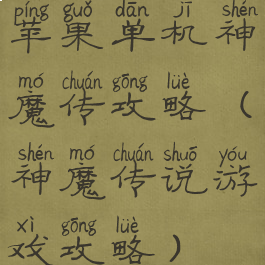 píng guǒ dān jī shén
苹果单机神
mó chuán gōng lüè
魔传攻略（
shén mó chuán shuō yóu
神魔传说游
xì gōng lüè
戏攻略）